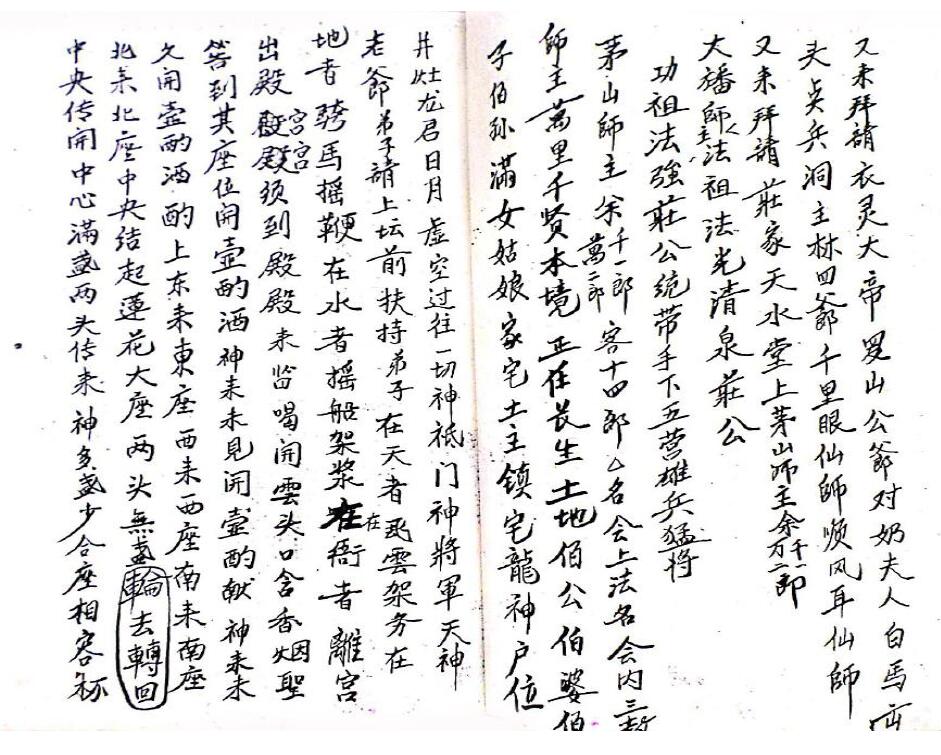 又来拜請衣灵大帝罗山公爺对奶夫人白馬
头兵洞主林四爺千里眼仙師顺风耳仙師
又来拜請莊家天水堂上茅山師主余千一郎万二郎
大旛師主法祖法光清泉莊公
功祖法強莊公统带手下五营雄兵猛将
茅山師主余千一郎萬二郎客十四郎么名会上法名会内三
師主萬里千贤本境正任長生土地伯公伯婆伯
子伯孙滿女姑娘家宅土主鎮宅龍神户位
井灶龙君日月虚空过往一切神祇门神將軍天神
老爺弟子請上坛前扶持弟子在天者雲架务在
地者骑馬摇鞭在水者摇船架浆在在衙者離宫
出殿宫宫殿须到殿殿来喝開雲头口含香烟聖
答到其座位開壶酌酒神来未見開壺酌献神来未
又開壺酌酒酌上东来東座西来西座南来南座
北来北座中央结起蓮花大座两头無盏輪去轉回
中央传開中心滿盏两头传来神多盏少合座相容